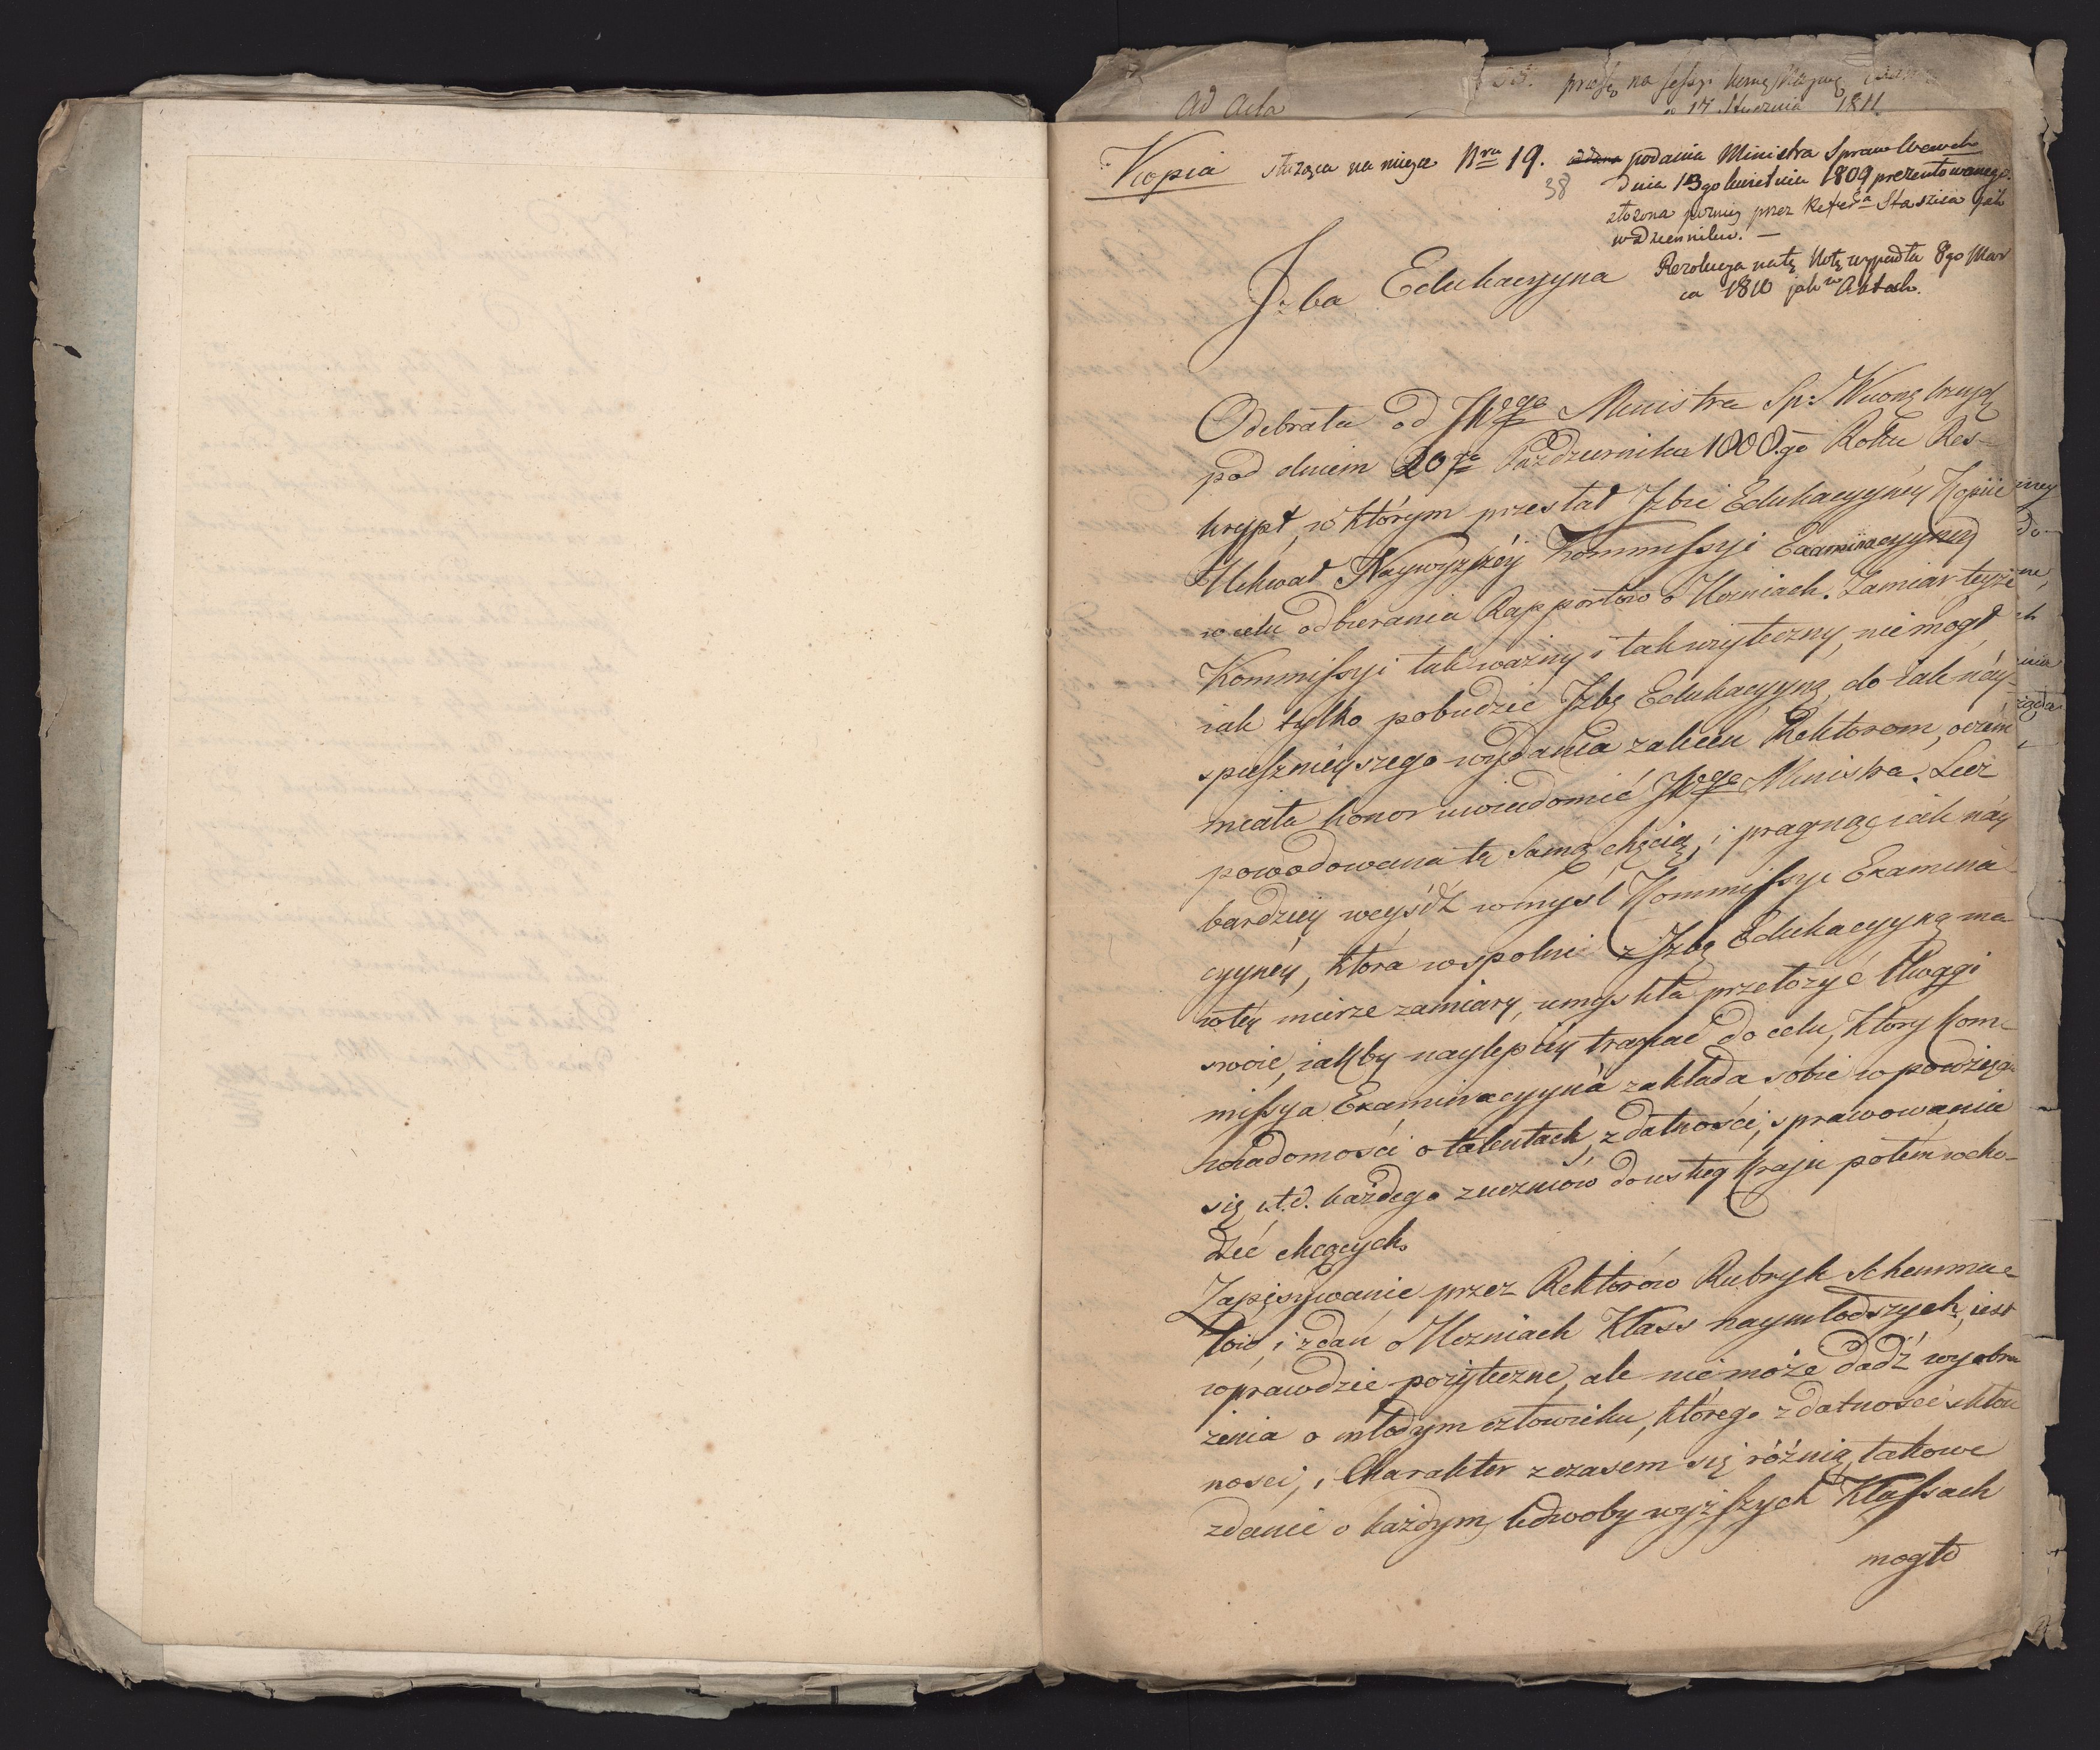 ad acta
na sessyi
17 Stycznia 1811
Kopia służąca na miejsce Nru 19. podania Ministra Spraw Wewch
38
dnia 13go kwietnia 1809 prezentowanego.
złożona przez Refera Staszica jak
w dzienniku. —
Rezolucya na tę Notę wypadła 8go Mar
ca 1810 jak w Aktach.
Izba Edukacyyna
Odebrała od JWgo Ministra Sp: Wewnętrznych
pod dniem 20go Października 1808.go Roku Res-
krypt, w którym przesłał Izbie Edukacyyney Kopiie
Uchwał Naywyższéy Kommissyi Examinacyyney
w celu odbierania Rapportów o Uczniach. Zamiar teyże
Kommissyi tak ważny i tak użyteczny, nie mógł
iak tylko pobudzić Izbę Edukacyyną, do iak náy-
spieszniéyszego wydania zaleceń Rektorom, o czém
miała honor uwiadomić JWgo Ministra. Lecz
powodowana tą samą chęcią, i pragnąc iak náy
bardziéy weyśdź w myśl Kommissyi Examina
cyynéy, która wspólnie z Izbą Edukacyyną ma
w téy mierze zamiary, umyśliła przełożyć Uwagi
swoie, iakby naylepiéy trafiać do celu, który Kom-
missya Examinacyyna zakłada sobie w powzięciu
wiadomości o talentach, zdatności, sprawowaniu
się, i.t.d. każdego z uczniów do usług Kraju potém wcho-
dzić chcących.
Zapisywanie przez Rektorów Rubryk Schemma-
tów, i zdań o Uczniach Klass naymłodszych, iest
wprawdzie pożyteczne, ale nie może dadź wyobra
żenia o młodym człowieku, którego zdatności skłon
ności, i Charakter z czasem się różnią, takowe
zdanie o każdym, ledwoby w wyższych Klassach
mogło